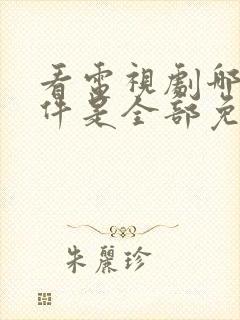 看電視劇哪
件是全部免
朱麗珍